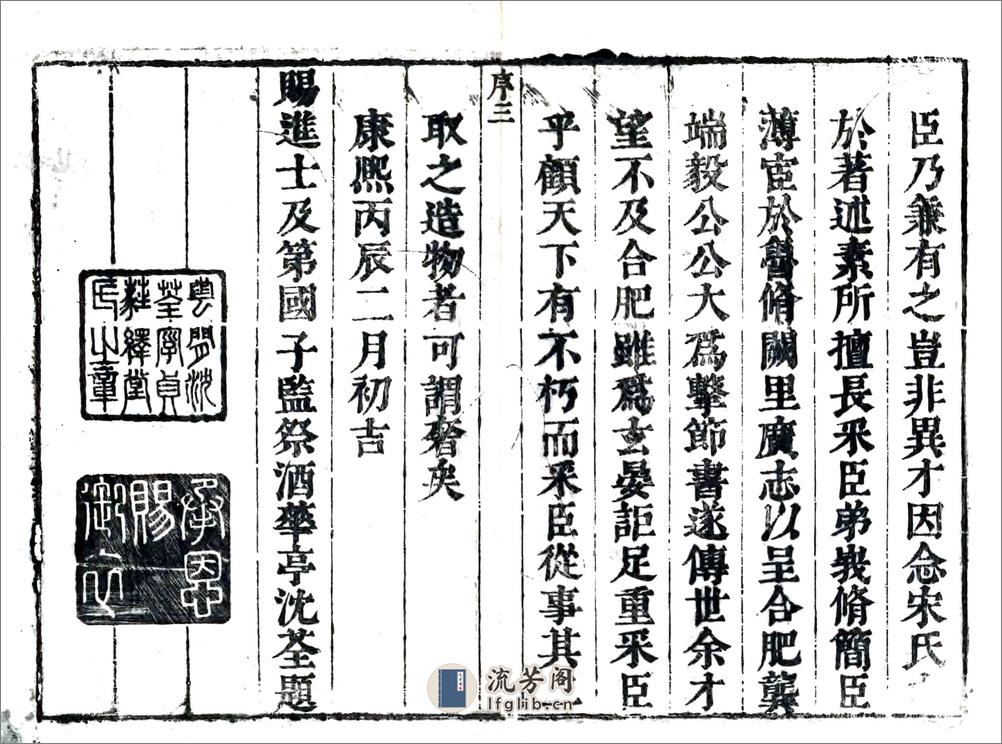 臣乃兼有之豈非異才因念宋氏
於著述素所擅長釆臣弟峩脩簡臣
薄宦於魯脩闕里廣志以呈合肥龔
端毅公公大爲擊節書遂傳世余才
望不及合肥雖爲玄晏詎足重釆臣
乎顧天下有不朽而釆臣從事其
序三
取之造物者可謂奢矣
康熈丙辰二月初吉
賜進士及第國子監祭酒華亭沈荃題
雲間沈
荃字貞
蕤繹堂
氏之章
承恩
賜
流芳阁
lfglib.cn